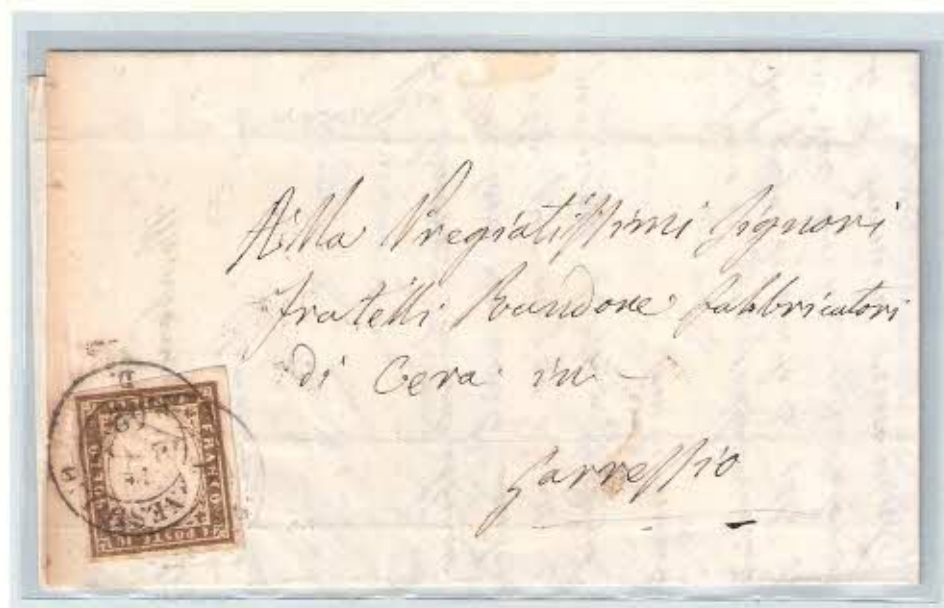 Alla Pregiatissimi Signori
Fratelli Randone fabbricatori
di Cera in
Garressio
FRANCO
C. POSTE